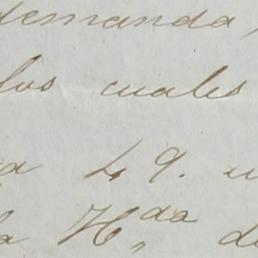 demanda,
los cuales
a 4 9. u
la H,da de